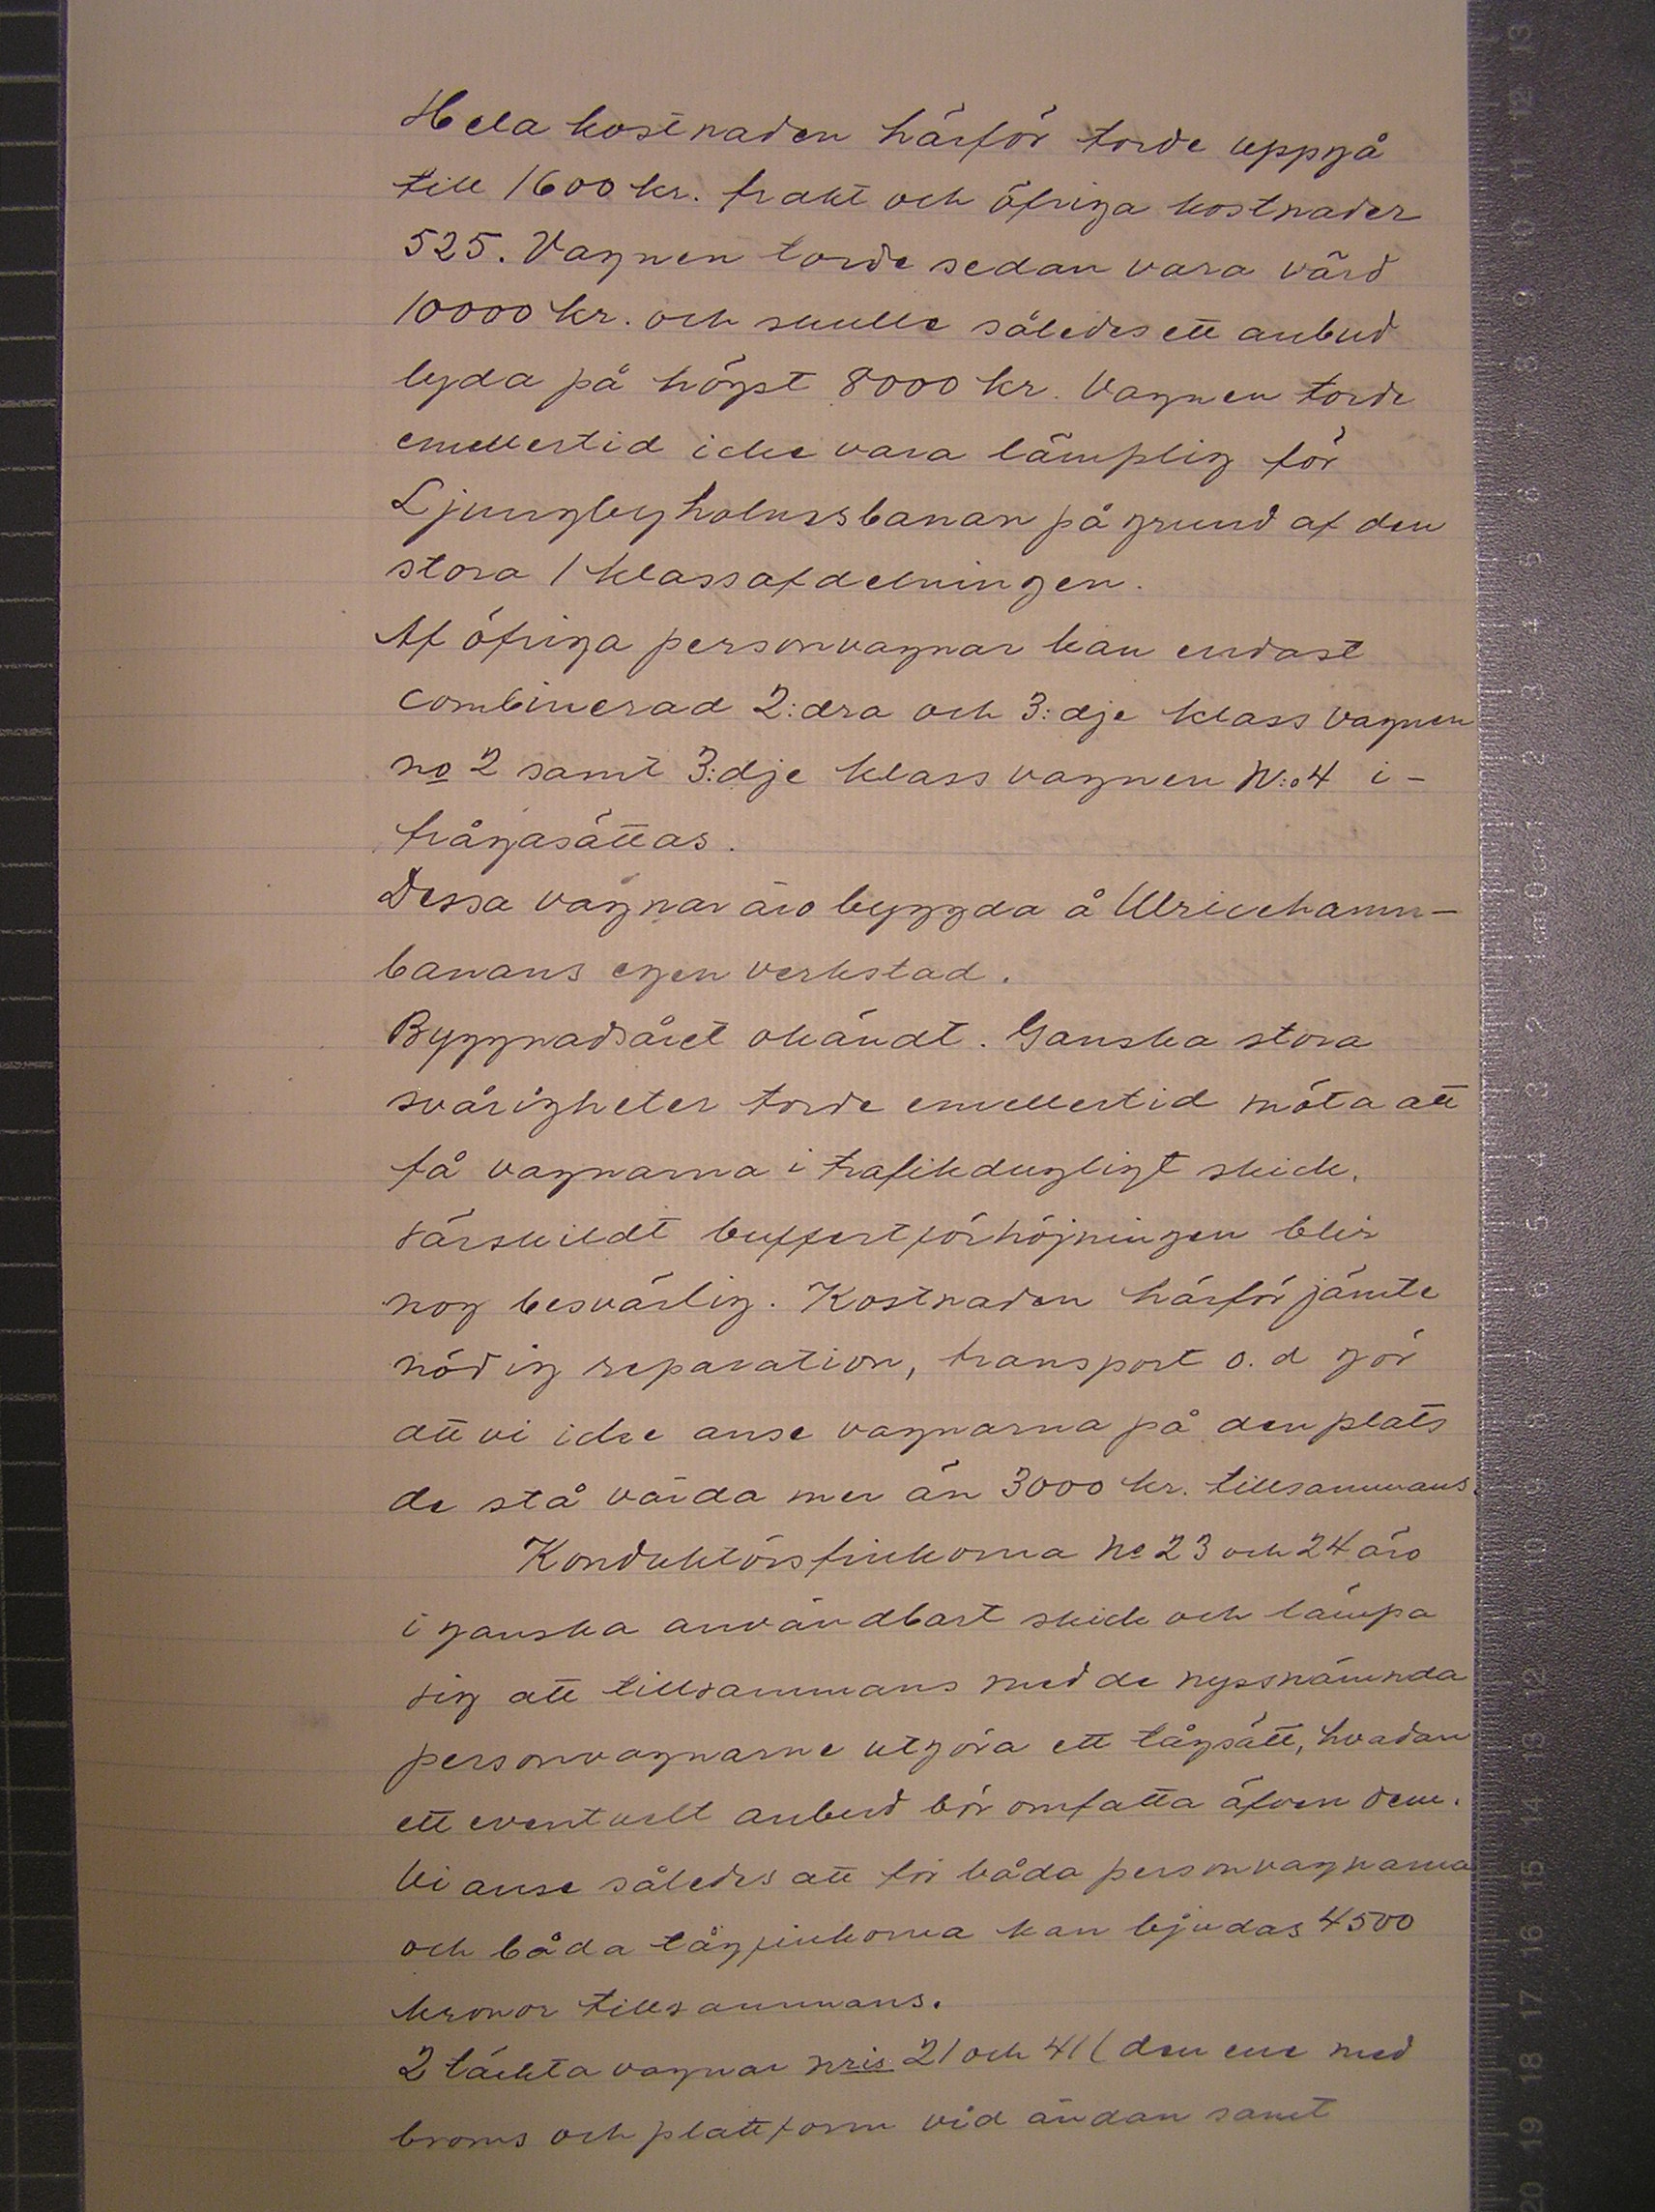 Hela kostnaden härför torde uppgå
till 1600 kr. frakt och öfriga kostnader
525. Vagnen torde sedan vara värd
10000 kr. och skulle således ett anbud
lyda på högst 8000 kr. Vagnen torde
emellertid icke vara lämplig för
Ljungbyholmsbanan på grund af den
stora 1 klassafdelningen.
Af öfriga personvagnar kan endast
combinerad 2:dra och 3:dje klass vagnen
no 2 samt 3:dje klass vagnen N:o 4 i-
frågasättas.
Dessa vagnar äro byggda å Ulricehamn-
banans egen verkstad.
Byggnadsåret okändt. Ganska stora
svårigheter torde emellertid möta att
få vagnarna i trafikdugligt skick,
särskildt buffertförhöjningen blir
nog besvärlig. Kostnaden härför jämte
nödig reparation, transport o. d gör
att vi icke anse vagnarna på den plats
de stå värda mer än 3000 kr. tillsammans.
Konduktörsfinkorna No 23 och 24 äro
i ganska användbart skick och lämpa
sig att tillsammans med de nyssnämnda
personvagnarne utgöra ett tågsätt, hvadan
ett eventuelt anbud bör omfatta äfven dem.
Vi anse således att för båda personvagnarna
och båda tågfinkorna kan bjudas 4500
kronor tillsammans.
2 täckta vagnar nris 21 och 41 (den ene med
broms och plattform vid ändan samt
13
12
11
10
9
8
7
6
5
4
3
2
1
0 cm
1
2
3
4
5
6
7
8
9
10
11
12
13
14
15
16
17
18
19
20